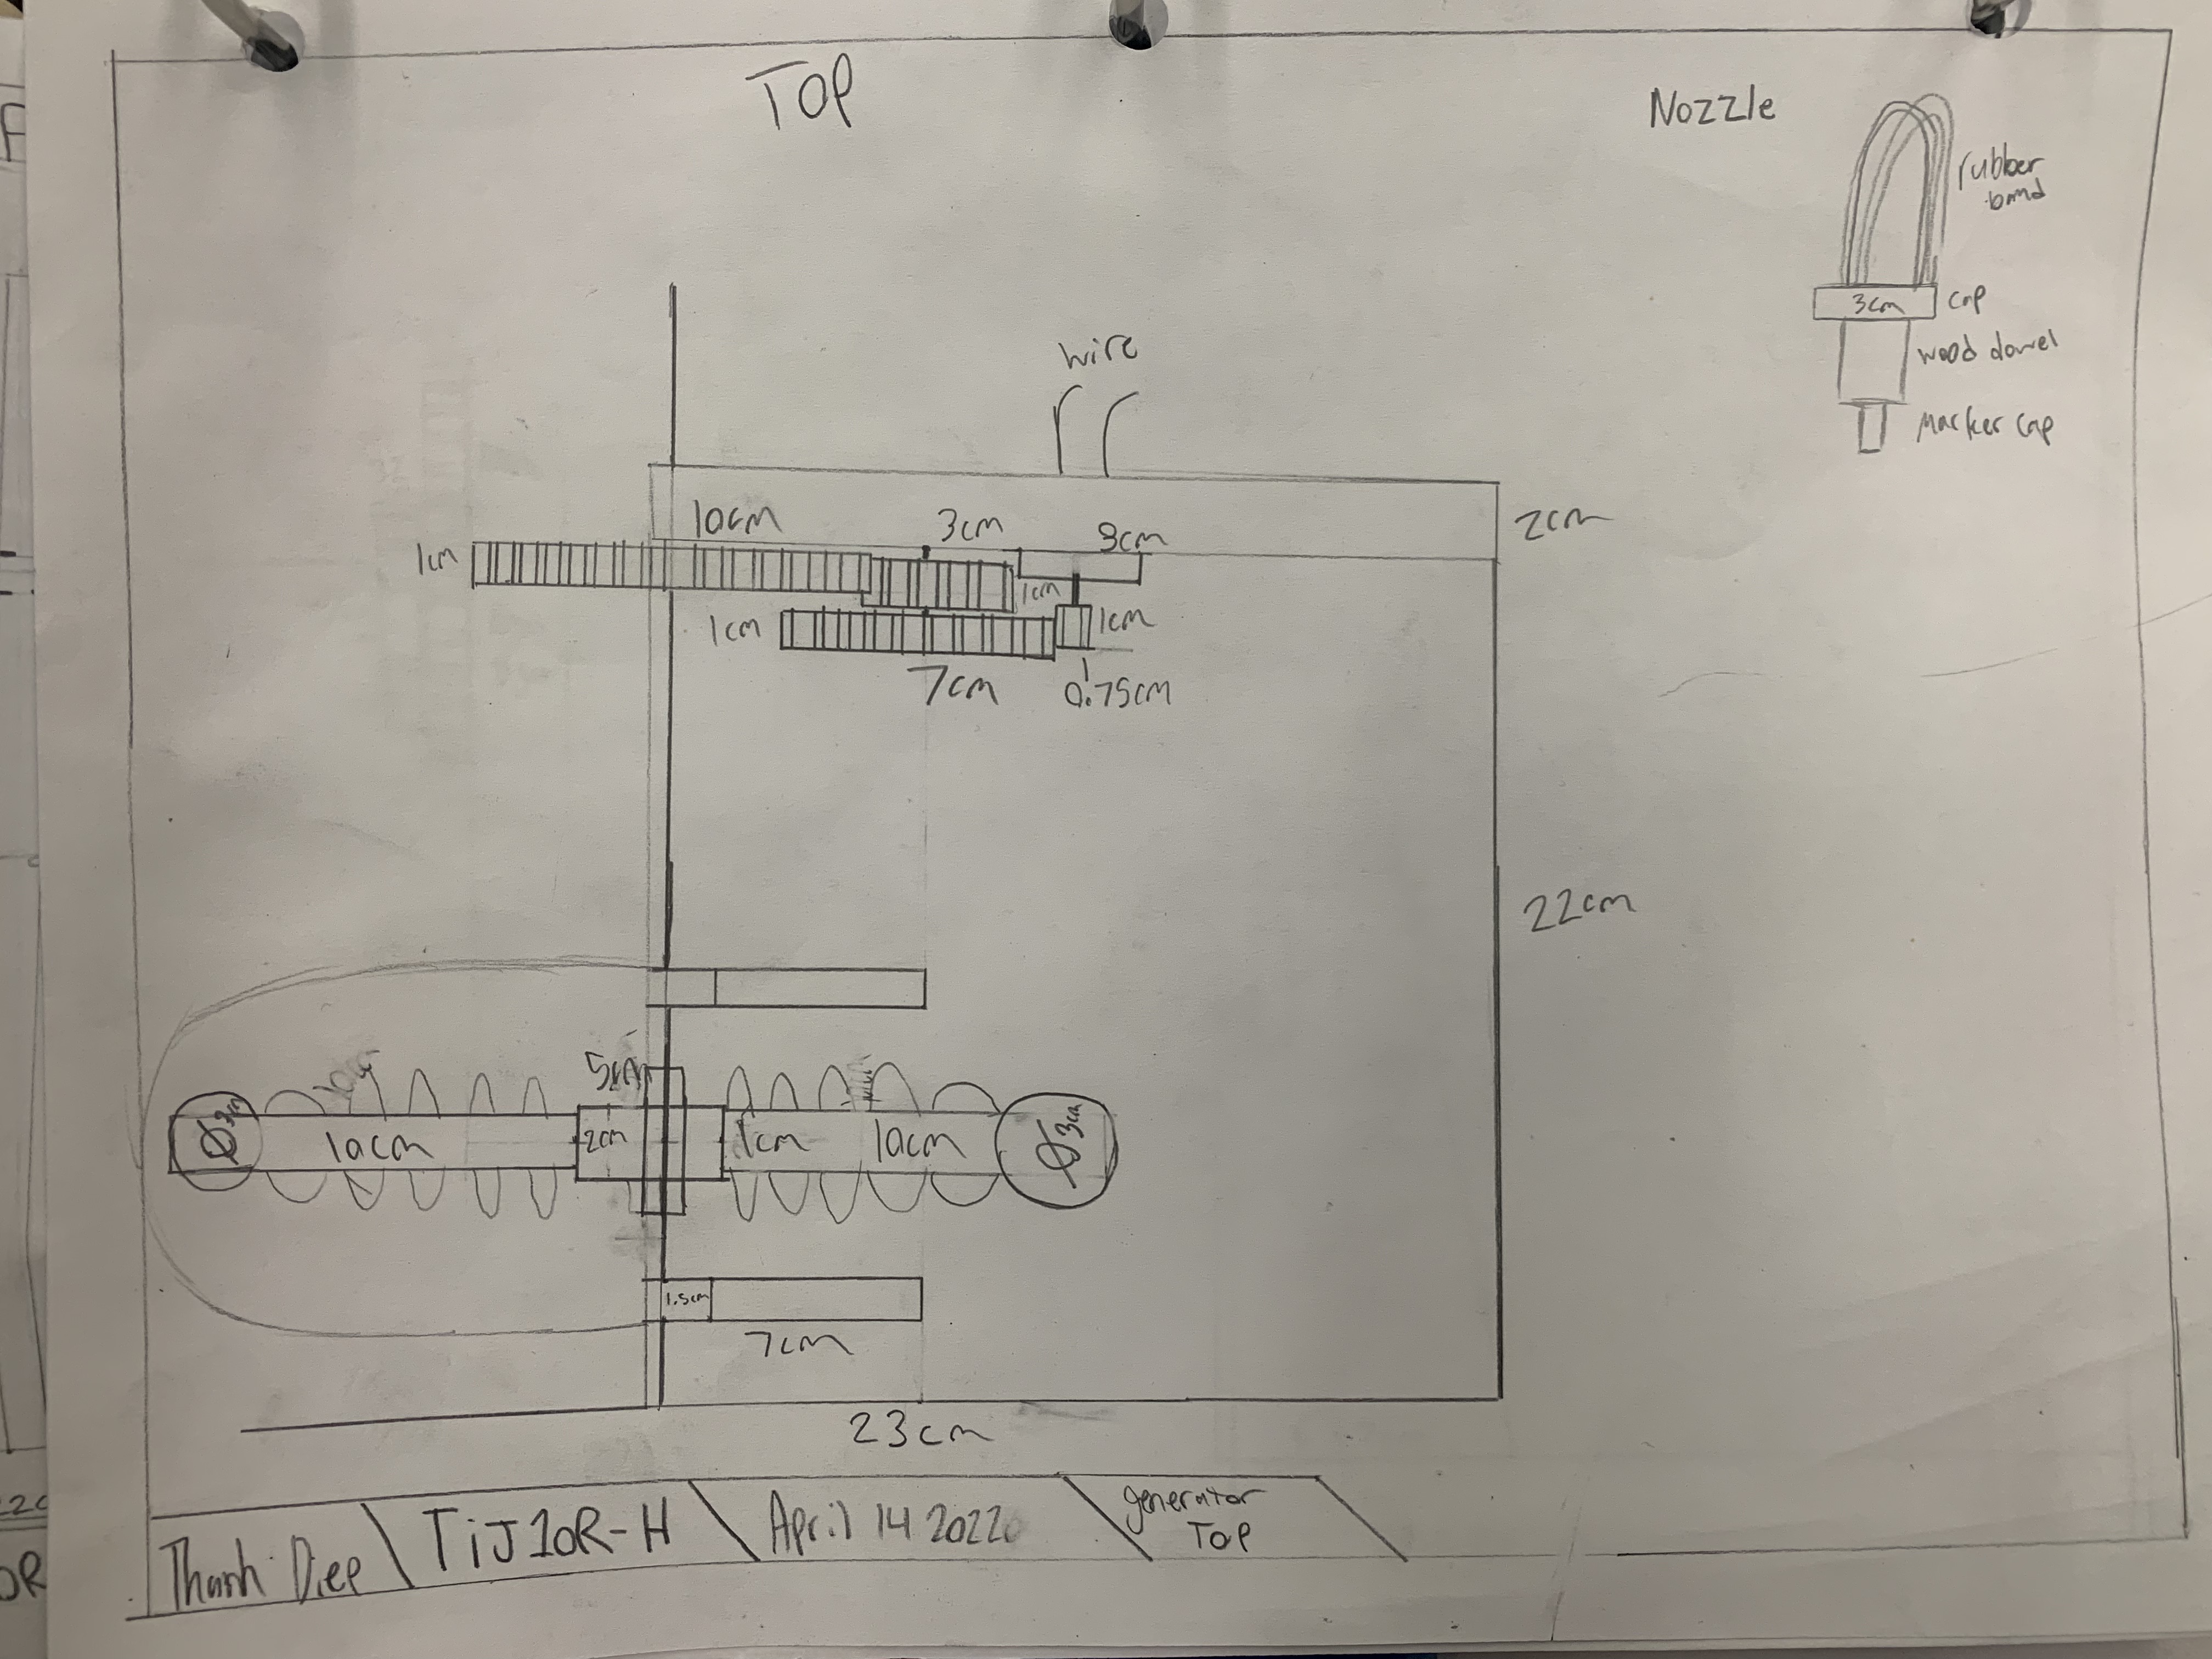 TOP
Nozzle
rubber
band
3cm
cap
wood dowel
Marker cap
wire
10cm
3cm
3cm
2cm
1cm
1cm
1cm
1cm
7cm
0.75cm
22cm
5cm
Ø3cm
10cm
2cm
1cm
10cm
Ø3cm
1.5cm
7cm
23cm
Thanh Diep
TiJ1OR-H
April 14 2022
generator
TOP